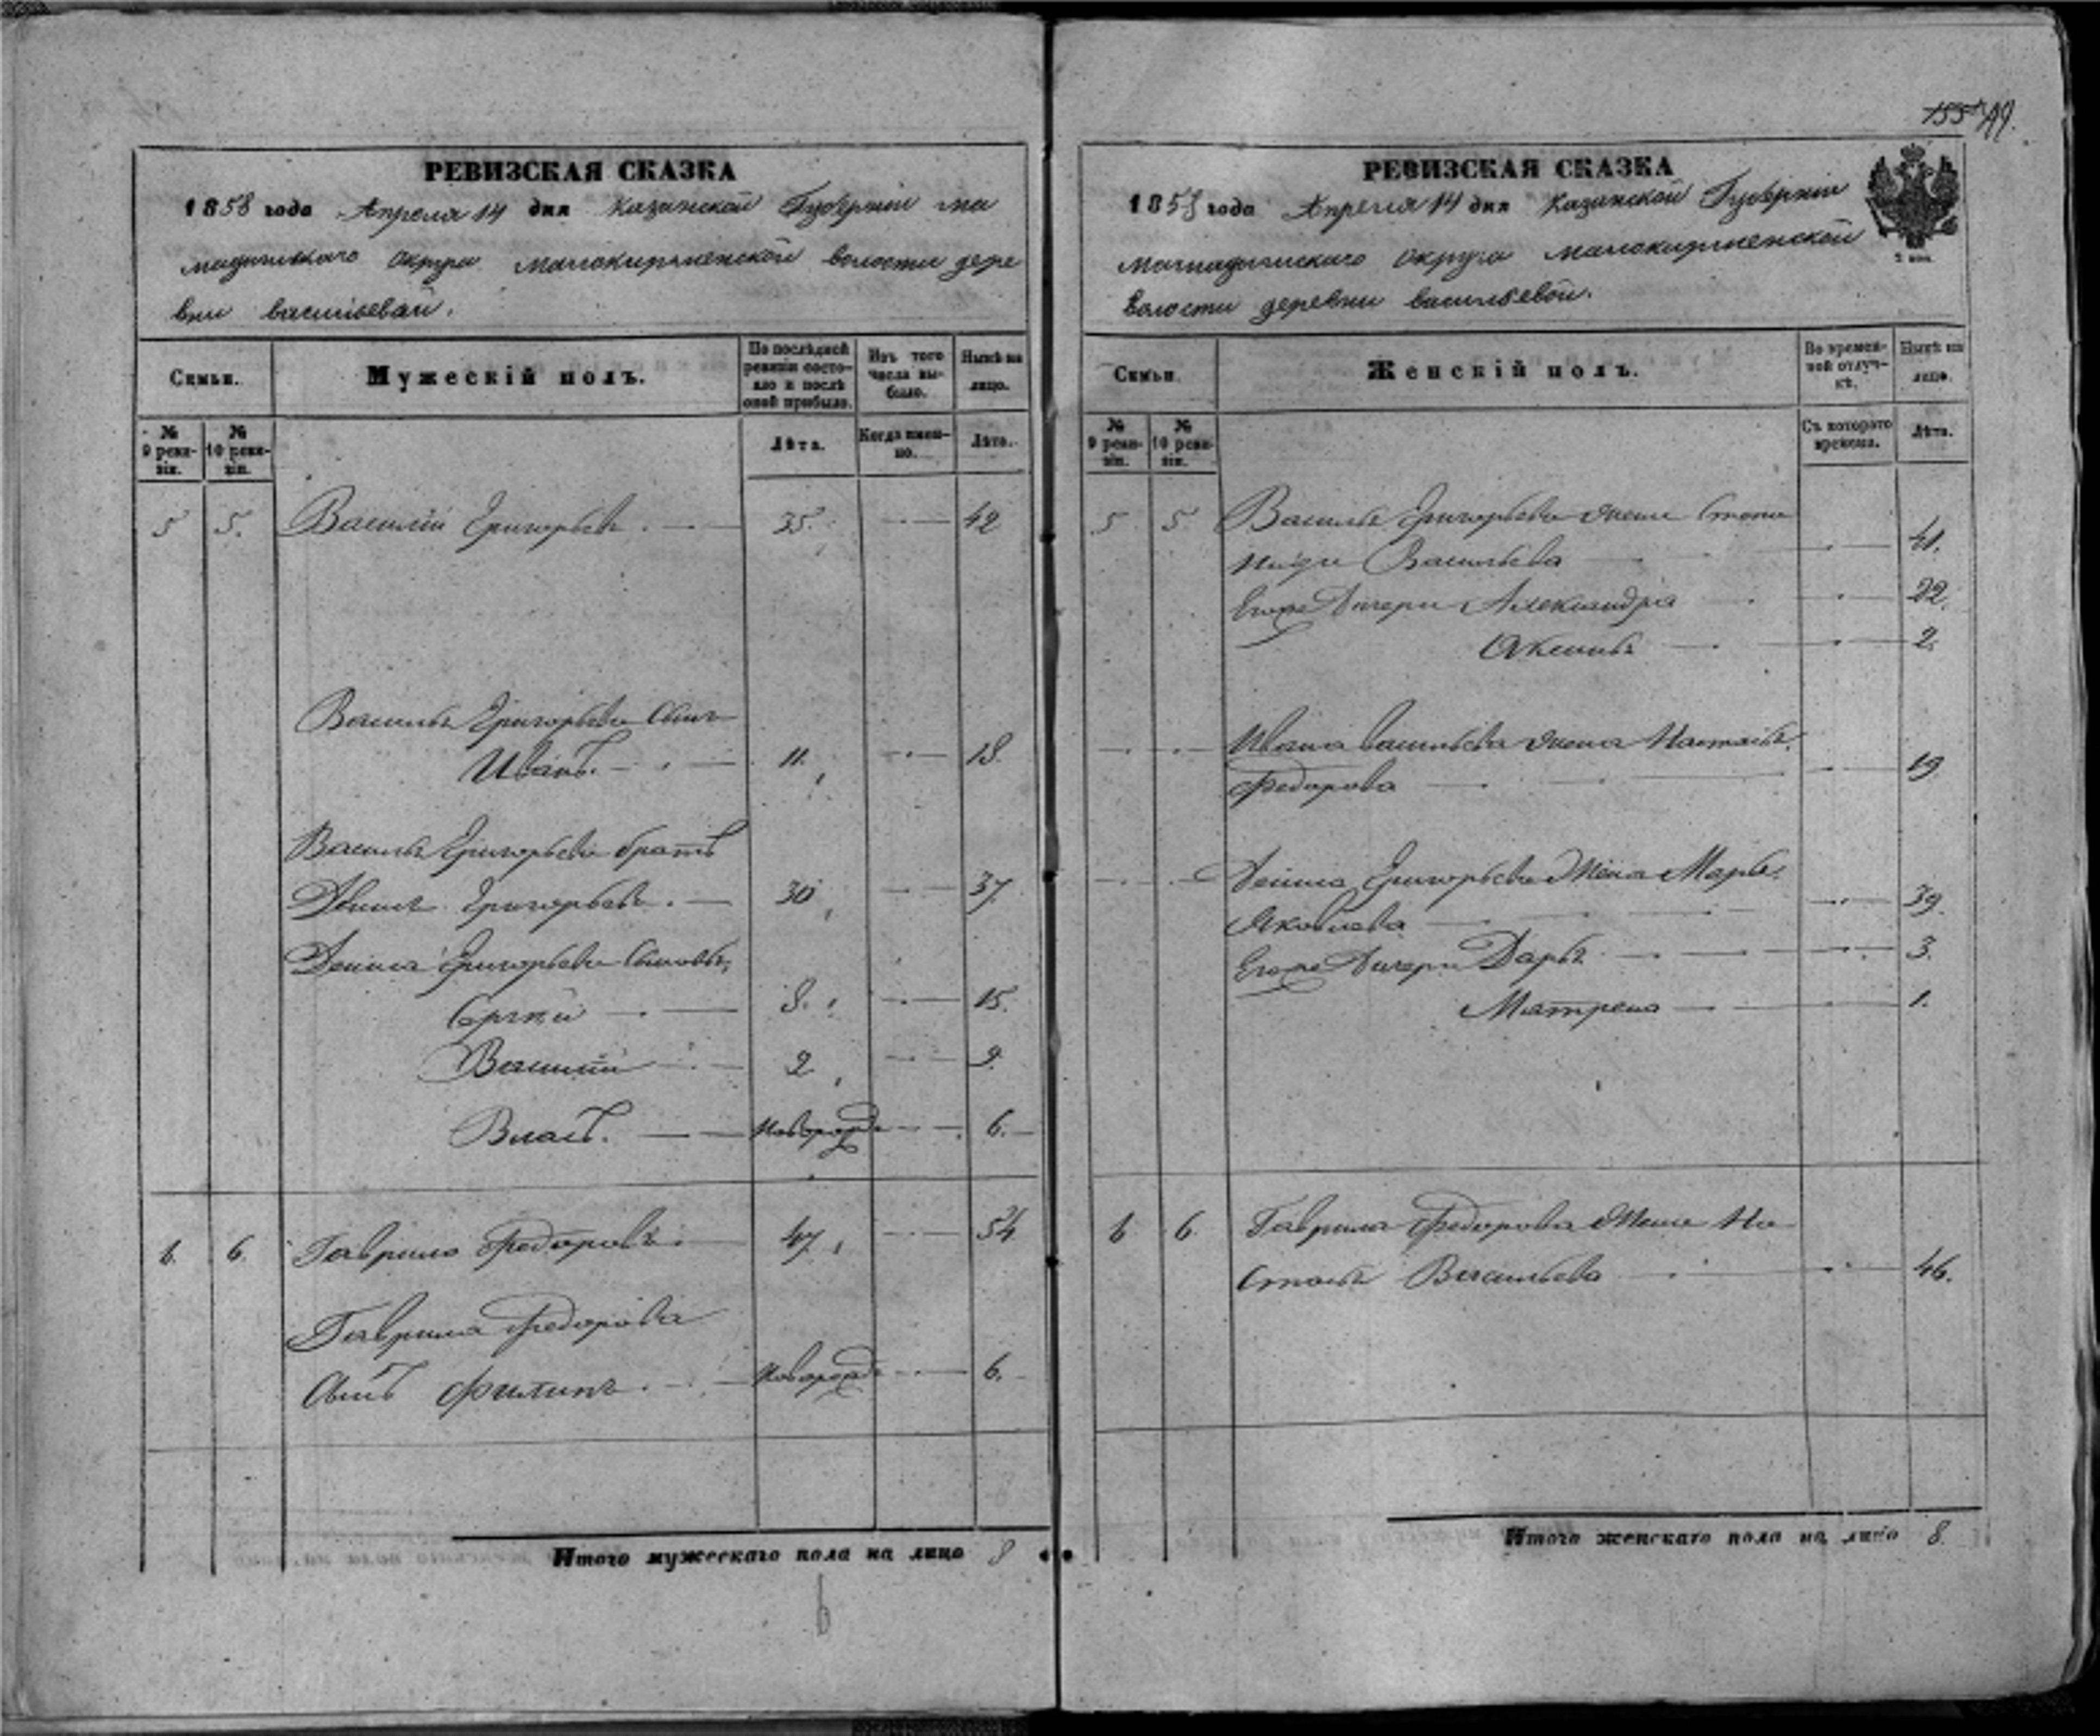 РЕВИЗСКАЯ СКАЗКА
1858 года Апреля 14 дня Казанской Губерніи ма
мадышскаго округа малокирменской волости дере
вни васильевой.
Семьи.
Мужескій полъ.
По послѣдней ревизіи состояло и послѣ оной прибыло.
Изъ того числа выбыло.
Нынѣ на лицо.
№ 9 ревизіи.
№ 10 ревизіи.
Лѣта.
Когда именно.
Лѣта.
5 5. Василій Григорьевъ. 35. 42
Василья Григорьева Сынъ
Иванъ. 11. 18.
Василья Григорьева братъ
Григорьевъ. 30 37.
Григорьева Сыновья,
Сергѣй 8. 15.
Василій 2 9.
Власъ. Новорожд 6.
6. 6. Гаврило Федоровъ. 47. 54
Гаврила Федорова
Сынъ Филипъ. Новорожд 6.
Итого мужескаго пола на лицо 8
6
155 
РЕВИЗСКАЯ СКАЗКА
1858 года Апреля 14 дня Казанской Губерніи
округа малокирменской
волости деревни васильевой.
2 коп.
Семьи.
Женскій полъ.
Во временной отлучкѣ.
Нынѣ на лицо.
№ 9 ревизіи.
№ 10 ревизіи.
Съ котораго времени.
Лѣта.
5 5 Василья Григорьева жена Степа
нида Васильева 41.
Егоже Дочери Александра 22.
2.
Ивана васильева жена Настасья
Федорова 19
Григорьева Жена Марья
Яковлева 39.
Егоже Дочери Дарья 3.
Матрена 1.
6 6. Гаврила Федорова Жена На
стасья Васильева 46.
Итого женскаго пола на лицо 8.